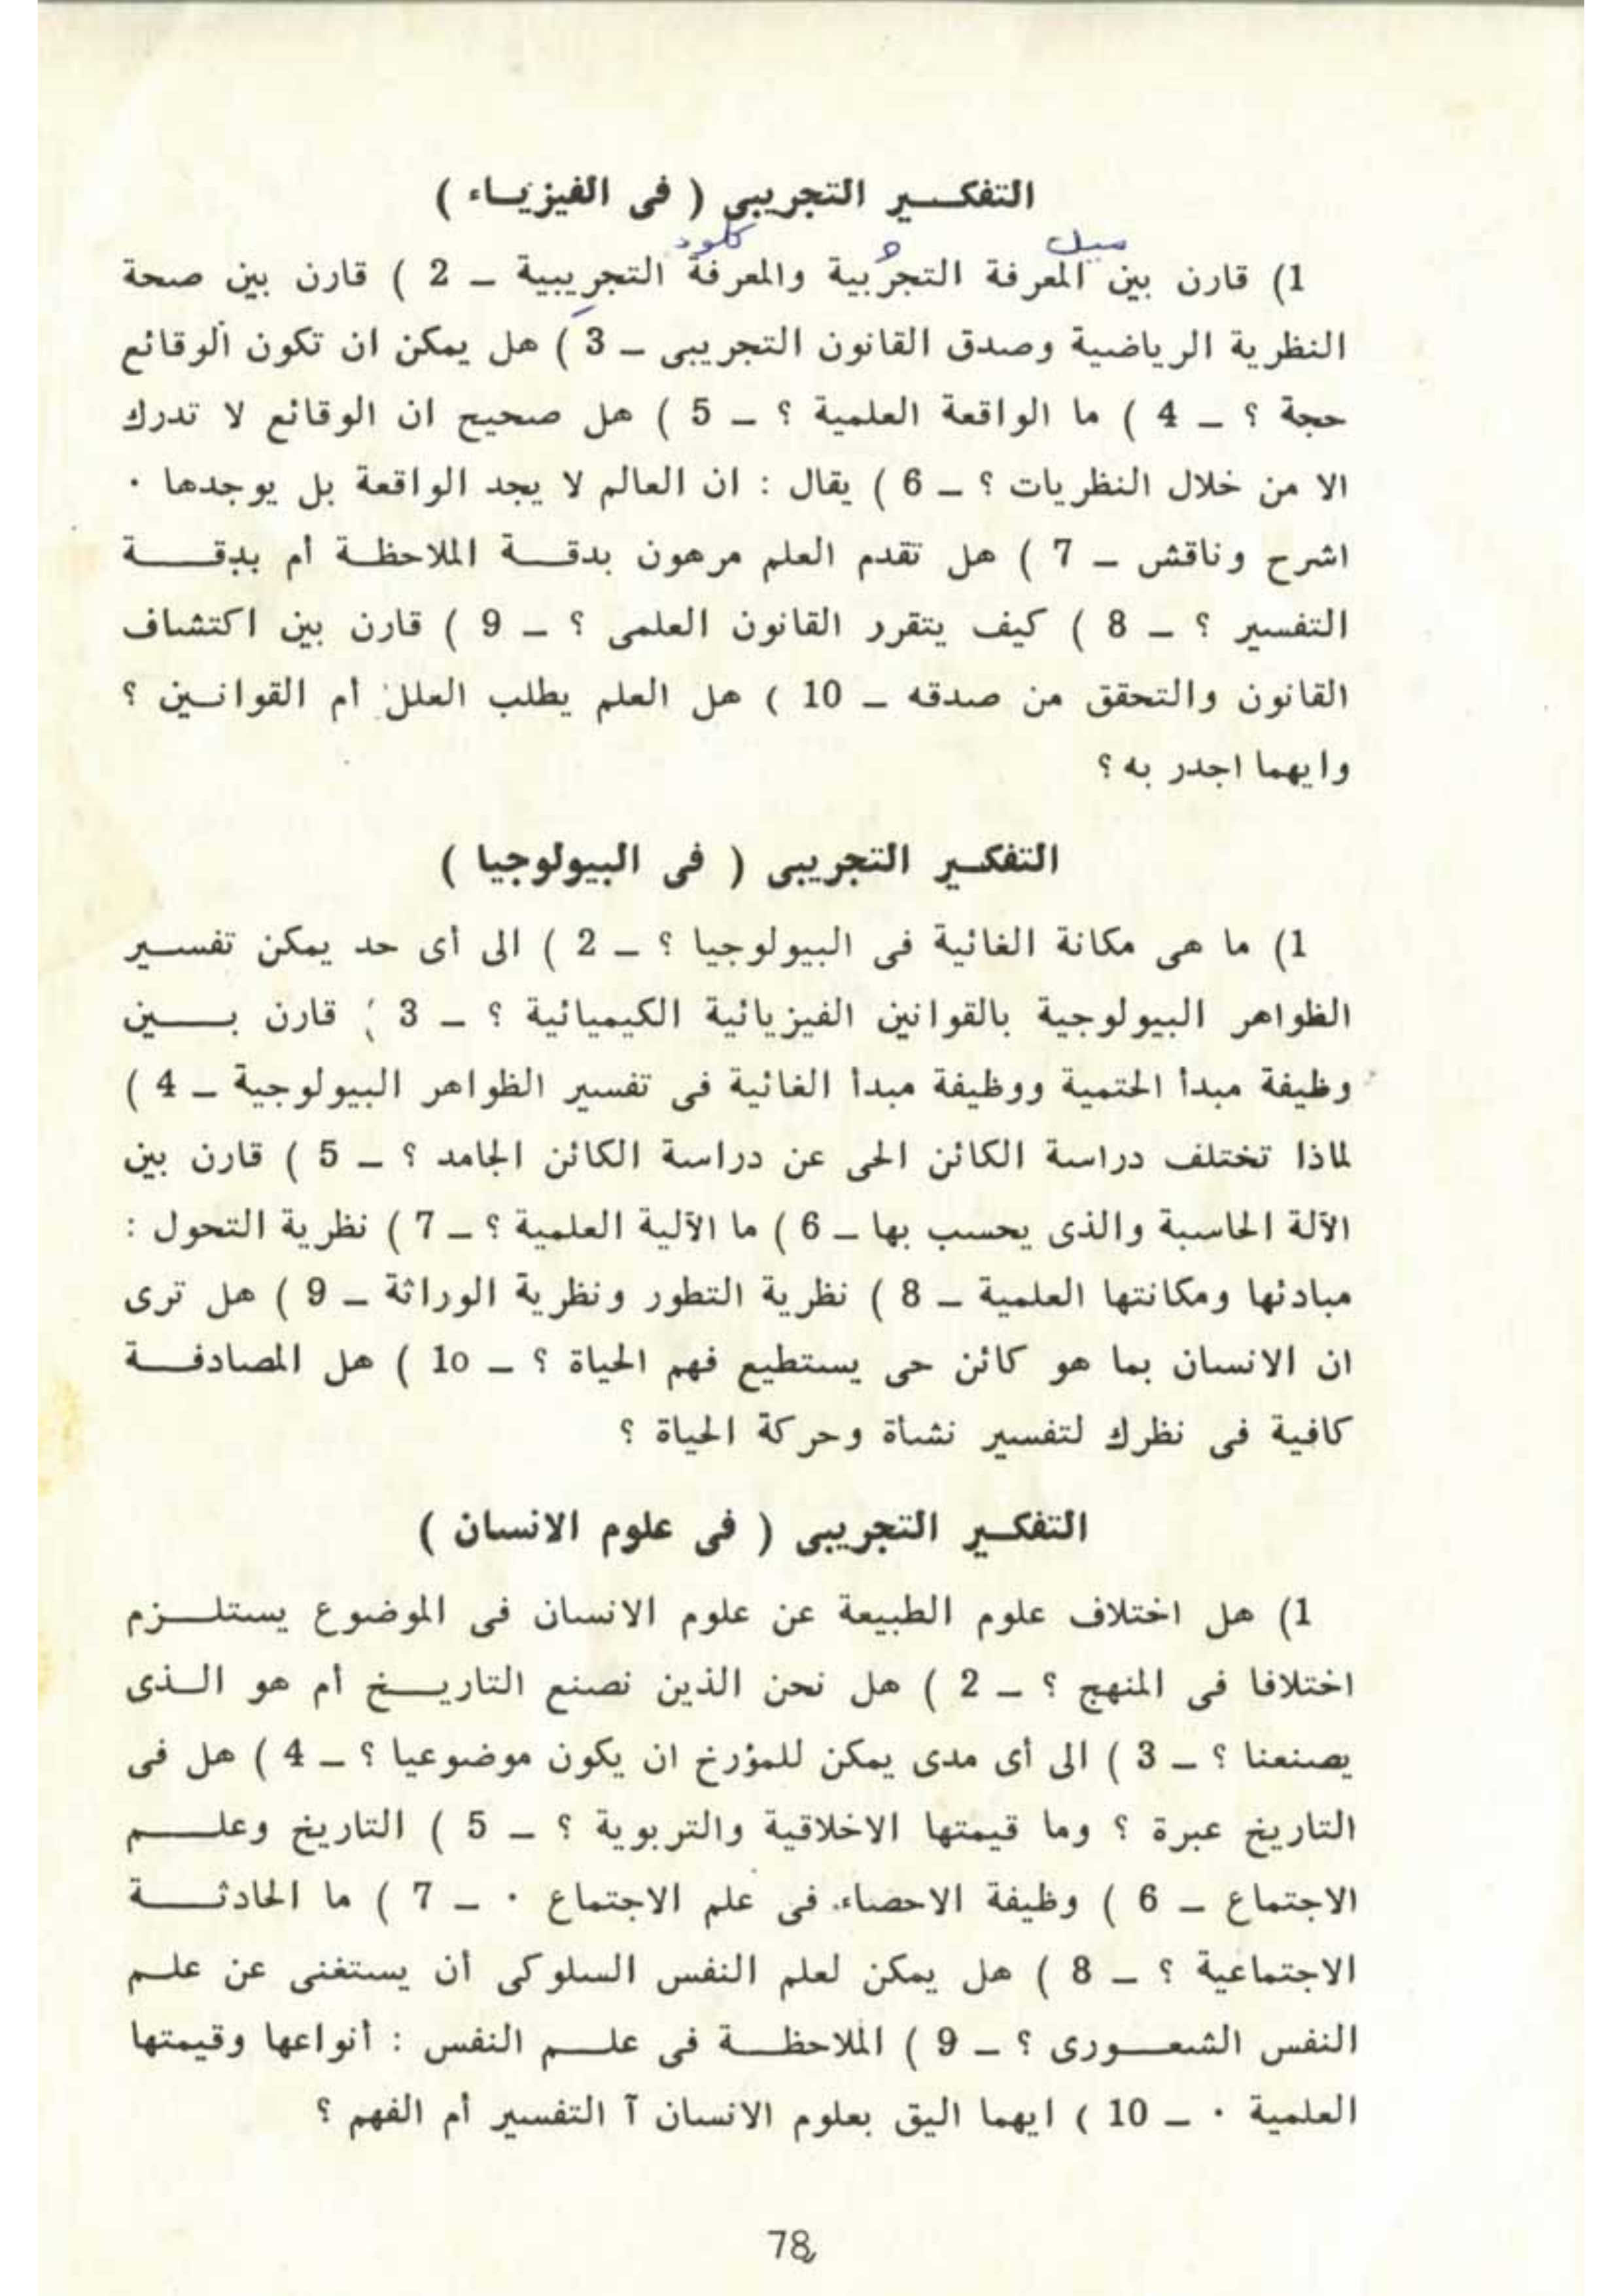 التفكير التجريبى ( فى الفيزياء )
ميل كلود
1) قارن بين المعرفة التجربية والمعرفة التجريبية ــ 2 ) قارن بين صحة
النظرية الرياضية وصدق القانون التجريبى ــ 3 ) هل يمكن ان تكون الوقائع
حجة ؟ ــ 4 ) ما الواقعة العلمية ؟ ــ 5 ) هل صحيح ان الوقائع لا تدرك
الا من خلال النظريات ؟ ــ 6 ) يقال : ان العالم لا يجد الواقعة بل يوجدها ٠
اشرح وناقش ــ 7 ) هل تقدم العلم مرهون بدقة الملاحظة أم بدقة
التفسير ؟ ــ 8 ) كيف يتقرر القانون العلمى ؟ ــ 9 ) قارن بين اكتشاف
القانون والتحقق من صدقه ــ 10 ) هل العلم يطلب العلل أم القوانين ؟
وايهما اجدر به ؟
التفكير التجريبى ( فى البيولوجيا )
1) ما هى مكانة الغائية فى البيولوجيا ؟ ــ 2 ) الى أى حد يمكن تفسير
الظواهر البيولوجية بالقوانين الفيزيائية الكيميائية ؟ ــ 3 ) قارن بين
وظيفة مبدأ الحتمية ووظيفة مبدأ الغائية فى تفسير الظواهر البيولوجية ــ 4 )
لماذا تختلف دراسة الكائن الحى عن دراسة الكائن الجامد ؟ ــ 5 ) قارن بين
الآلة الحاسبة والذى يحسب بها ــ 6 ) ما الآلية العلمية ؟ ــ 7 ) نظرية التحول :
مبادئها ومكانتها العلمية ــ 8 ) نظرية التطور ونظرية الوراثة ــ 9 ) هل ترى
ان الانسان بما هو كائن حى يستطيع فهم الحياة ؟ ــ 1o ) هل المصادفة
كافية فى نظرك لتفسير نشأة وحركة الحياة ؟
التفكير التجريبى ( فى علوم الانسان )
1) هل اختلاف علوم الطبيعة عن علوم الانسان فى الموضوع يستلزم
اختلافا فى المنهج ؟ ــ 2 ) هل نحن الذين نصنع التاريخ أم هو الذى
يصنعنا ؟ ــ 3 ) الى أى مدى يمكن للمؤرخ ان يكون موضوعيا ؟ ــ 4 ) هل فى
التاريخ عبرة ؟ وما قيمتها الاخلاقية والتربوية ؟ ــ 5 ) التاريخ وعلم
الاجتماع ــ 6 ) وظيفة الاحصاء فى علم الاجتماع ٠ ــ 7 ) ما الحادثة
الاجتماعية ؟ ــ 8 ) هل يمكن لعلم النفس السلوكى أن يستغنى عن علم
النفس الشعورى ؟ ــ 9 ) الملاحظة فى علم النفس : أنواعها وقيمتها
العلمية ٠ ــ 10 ) ايهما اليق بعلوم الانسان آ التفسير أم الفهم ؟
78